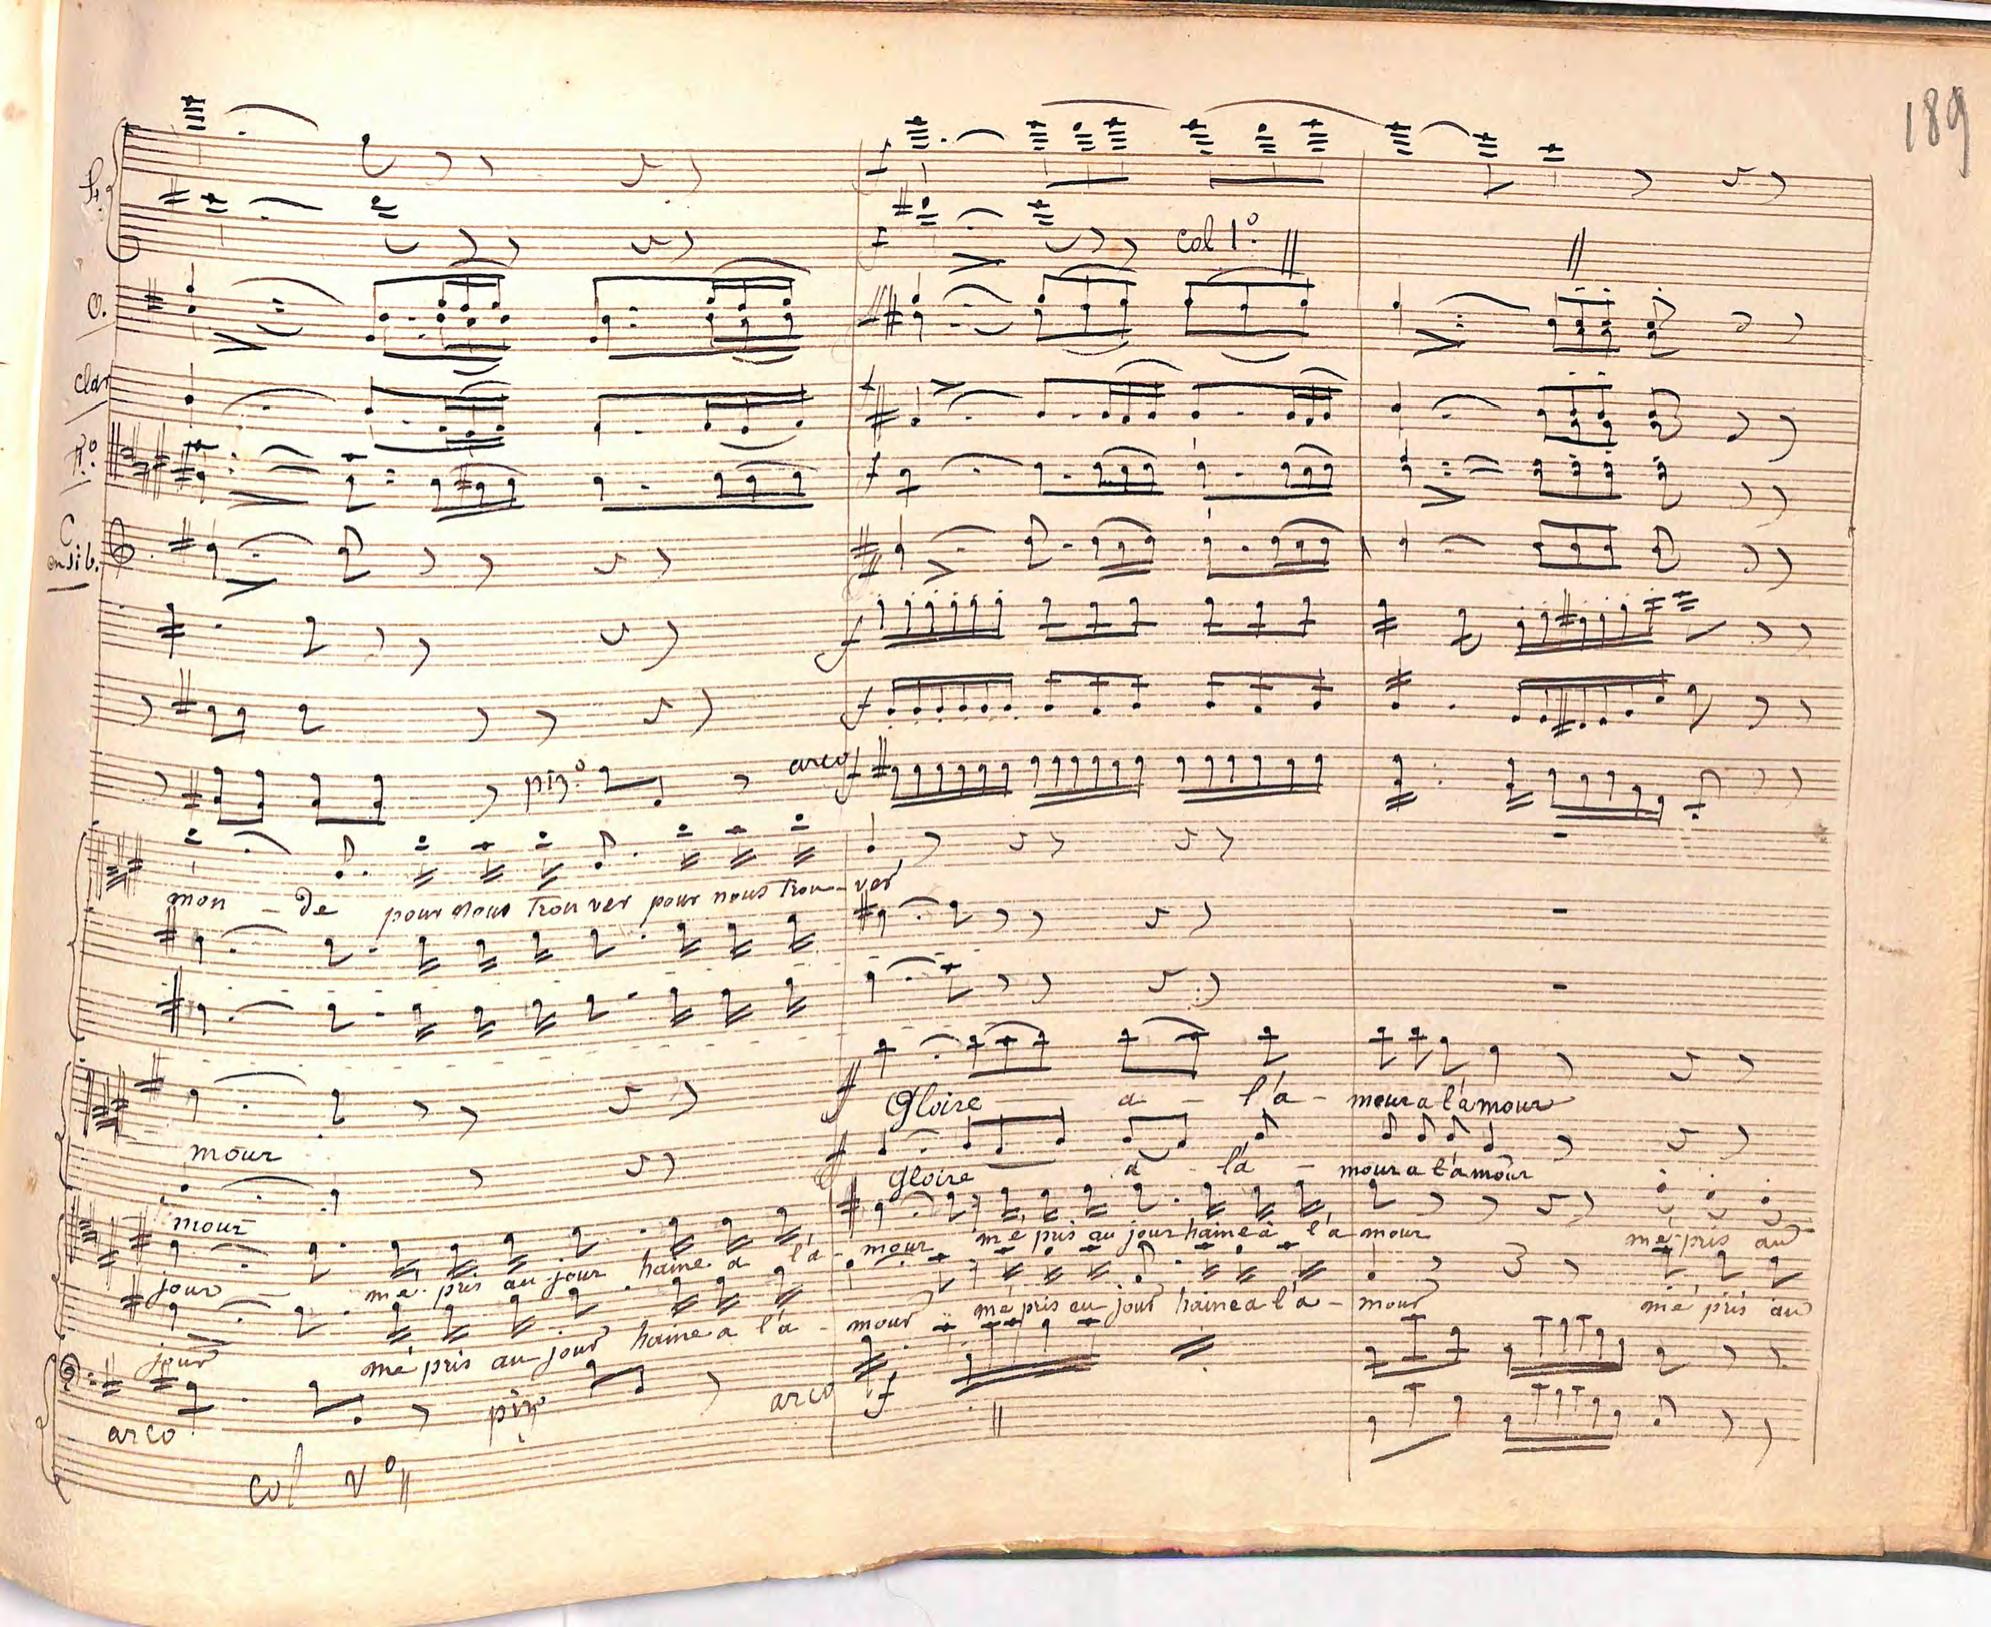 189
Fl.
f
f
col 1º
O.
clar
f
C
en si b.
f
f
pizº
arco f
mon - de pour nous trou ver pour nous trou - ver
f
Gloire a - l'a - mour a l'amour
mour
f
gloire a - l'a - mour a l'amour
mour
jour - mé pris au jour haine a l'a - mour mé pris au jour haine à l'a mour mé pris au
jour mé pris au jour haine a l'a - mour mé pris au jour haine a l'a - mour mé pris au
arco
piz
arco
f
col Vº